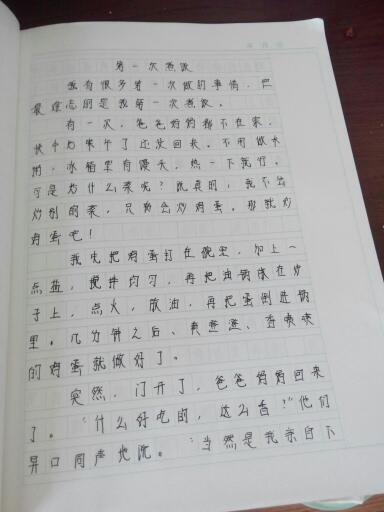 第一次煮饭
我有很多第一次做的事情，但
最难忘的是我第一次煮饭。
有一次，爸爸妈妈都不在家，
快中午了还没回来。不用做米
冰箱里有馒头，热一下就行，
可是炒什么菜呢？说真的，我不会
炒别的菜，只会炒鸡蛋。那就炒
鸡蛋吧！
我先把鸡蛋打在碗里，加上一
点盐，搅拌均匀，再把油锅放在炉
子上，点火，放油，再把蛋倒进锅
里。几分钟之后、黄澄澄、香喷喷
的鸡蛋就做好了。
突然，门开了，爸爸妈妈回来
了。“什么好吃的，这么香？”他们
异口同声地说。“当然是我亲自下